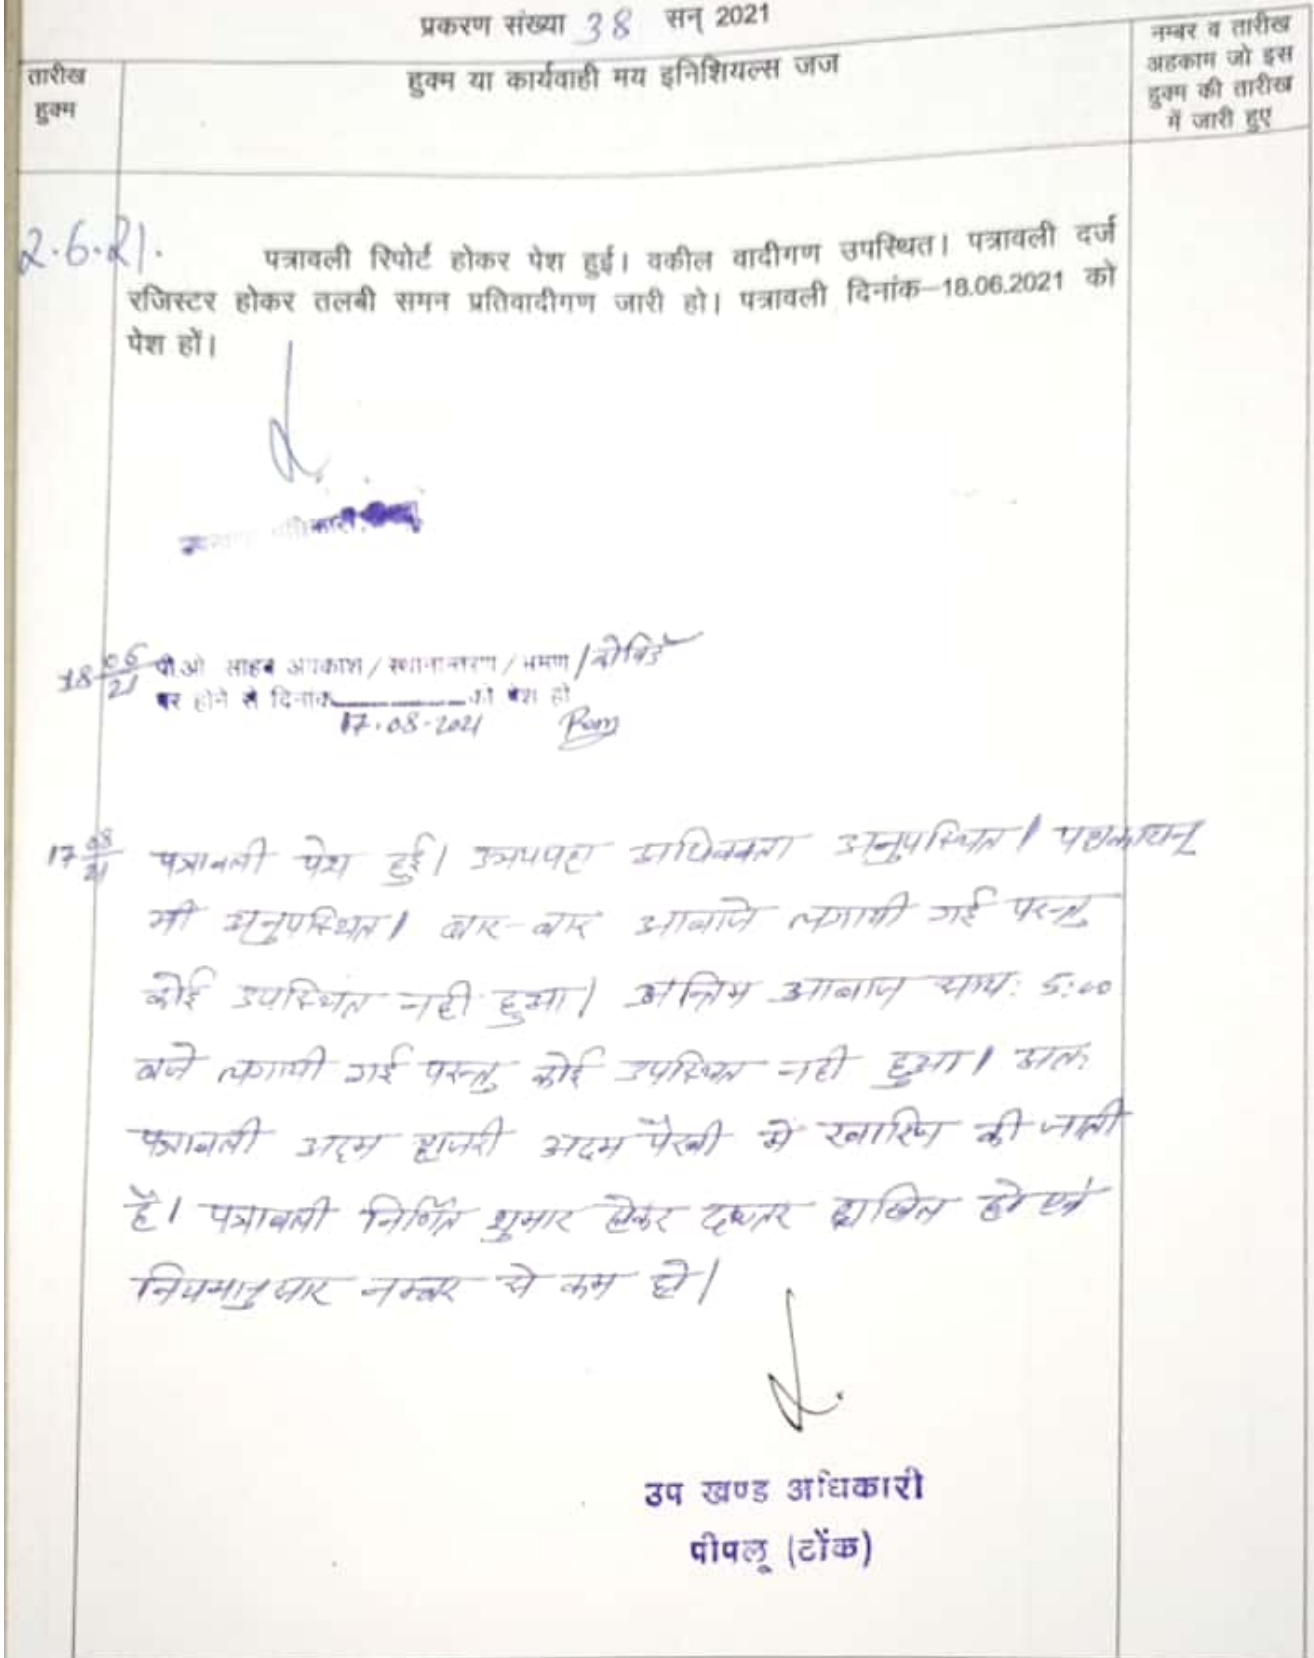 प्रकरण संख्या 38 सन् 2021
तारीख
हुक्म
हुक्म या कार्यवाही मय इनिशियल्स जज
नम्बर व तारीख
अहकाम जो इस
हुक्म की तारीख
में जारी हुए
2.6.21.
पत्रावली रिपोर्ट होकर पेश हुई। वकील वादीगण उपस्थित। पत्रावली दर्ज
रजिस्टर होकर तलबी समन प्रतिवादीगण जारी हो। पत्रावली दिनांक–18.06.2021 को
पेश हों।
18 06/21 पी.ओ साहब अवकाश / स्थानान्तरण / भ्रमण / कोविड
पर होने से दिनांक को पेश हो
17-08-2021
17 08/21 पत्रावली पेश हुई। उभयपक्ष अधिवक्ता अनुपस्थित। पक्षकारान्
भी अनुपस्थित। बार-बार आवाजे लगायी गई परन्तु
कोई उपस्थित नही हुआ। अन्तिम आवाज साय: 5:00
बजे लगायी गई परन्तु कोई उपस्थित नही हुआ। अतः
पत्रावली अदम हाजरी अदम पैरवी में खारिज की जाती
है। पत्रावली निर्णित शुमार होकर दफ्तर दाखिल हो एवं
नियमानुसार नम्बर से कम हो।
उप खण्ड अधिकारी
पीपलू (टोंक)